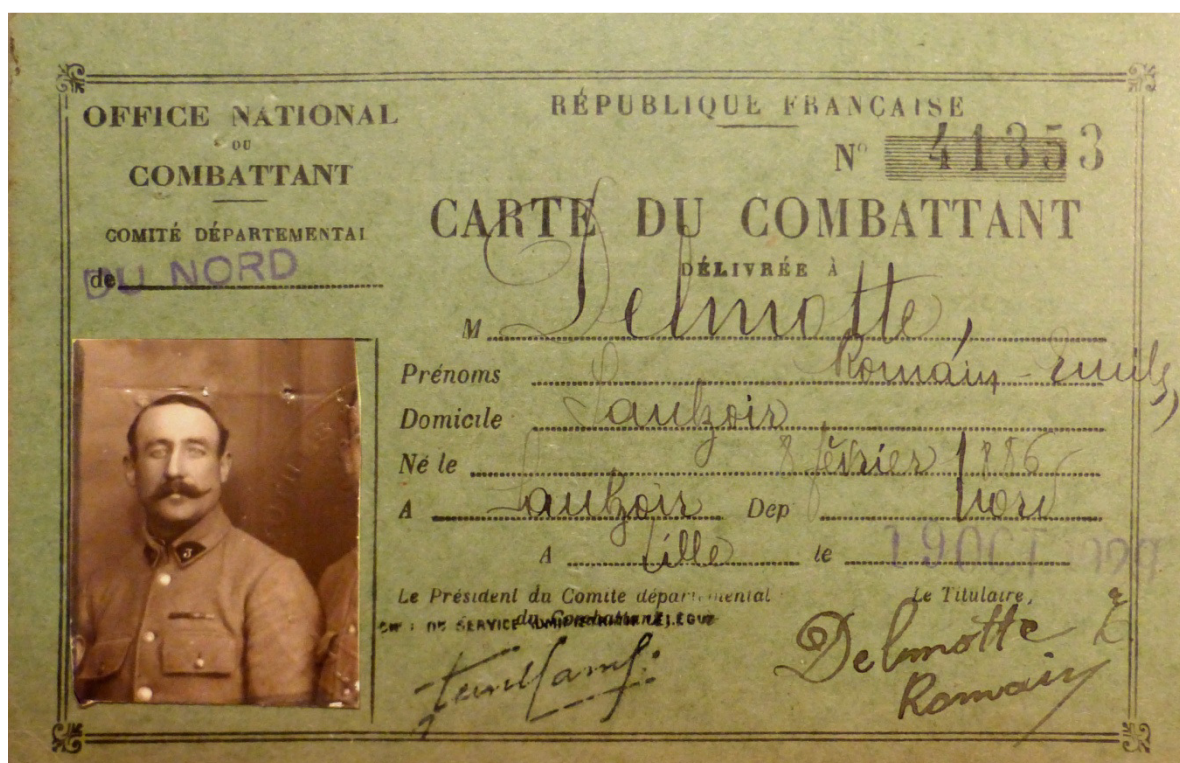 OFFICE NATIONAL
DU
COMBATTANT
COMITÉ DÉPARTEMENTAL
de DU NORD
RÉPUBLIQUE FRANÇAISE
N° 41353
CARTE DU COMBATTANT
DÉLIVRÉE À
M Delmotte,
Prénoms Romain-Emile,
Domicile Saulzoir
Né le 8 février 1886
A Saulzoir Dep Nord
A Lille le 19 OCT
Le Président du Comité départemental
du Combattant,
DE SERVICE ADMINISTRATIF DÉLÉGUÉ
Le Titulaire,
Delmotte
Romain